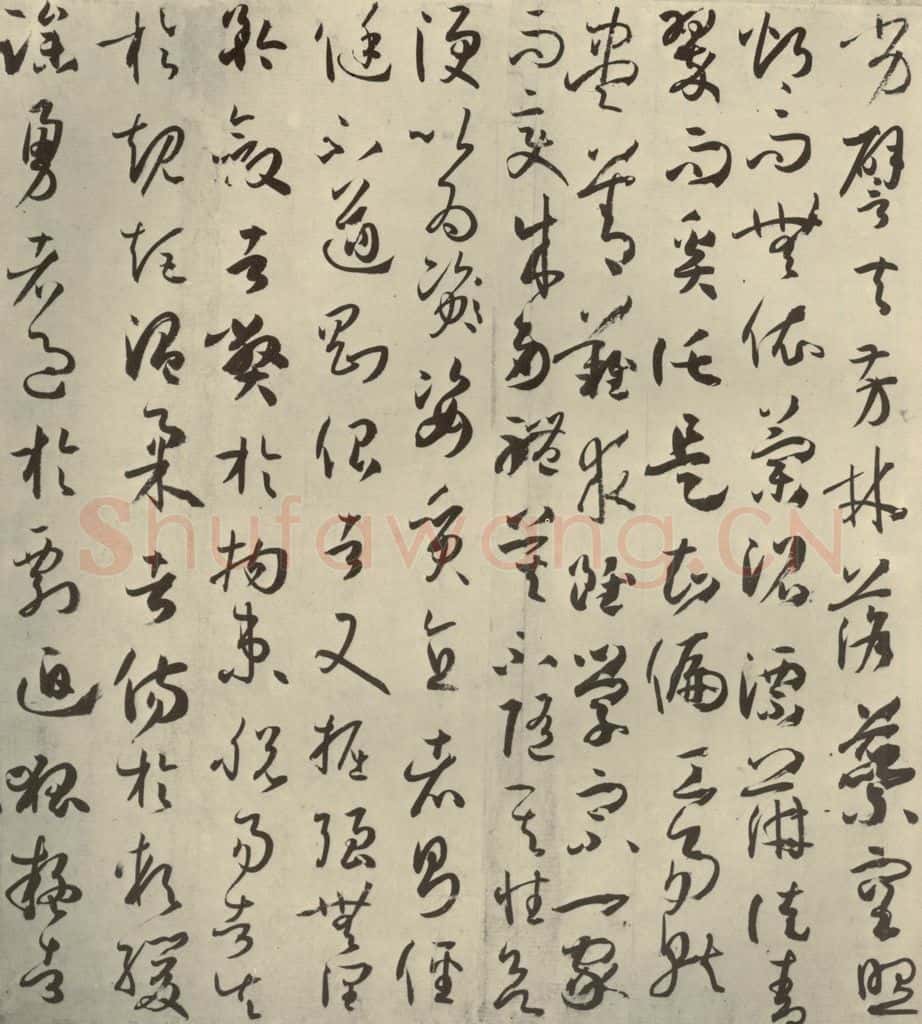 劣譬夫芳林落蘂空照
灼而無依蘭沼漂蓱徒青
翠而奚託是知偏工易就
盡善難求雖學宗一家
而變成多體莫不隨其性欲
便以為資姿質直者則俓
侹不遒剛佷者又掘強無潤
矜斂者弊於拘束脫易者失
於規矩溫柔者傷於軟緩
躁勇者過於剽迫狐疑者
Shufawang.CN